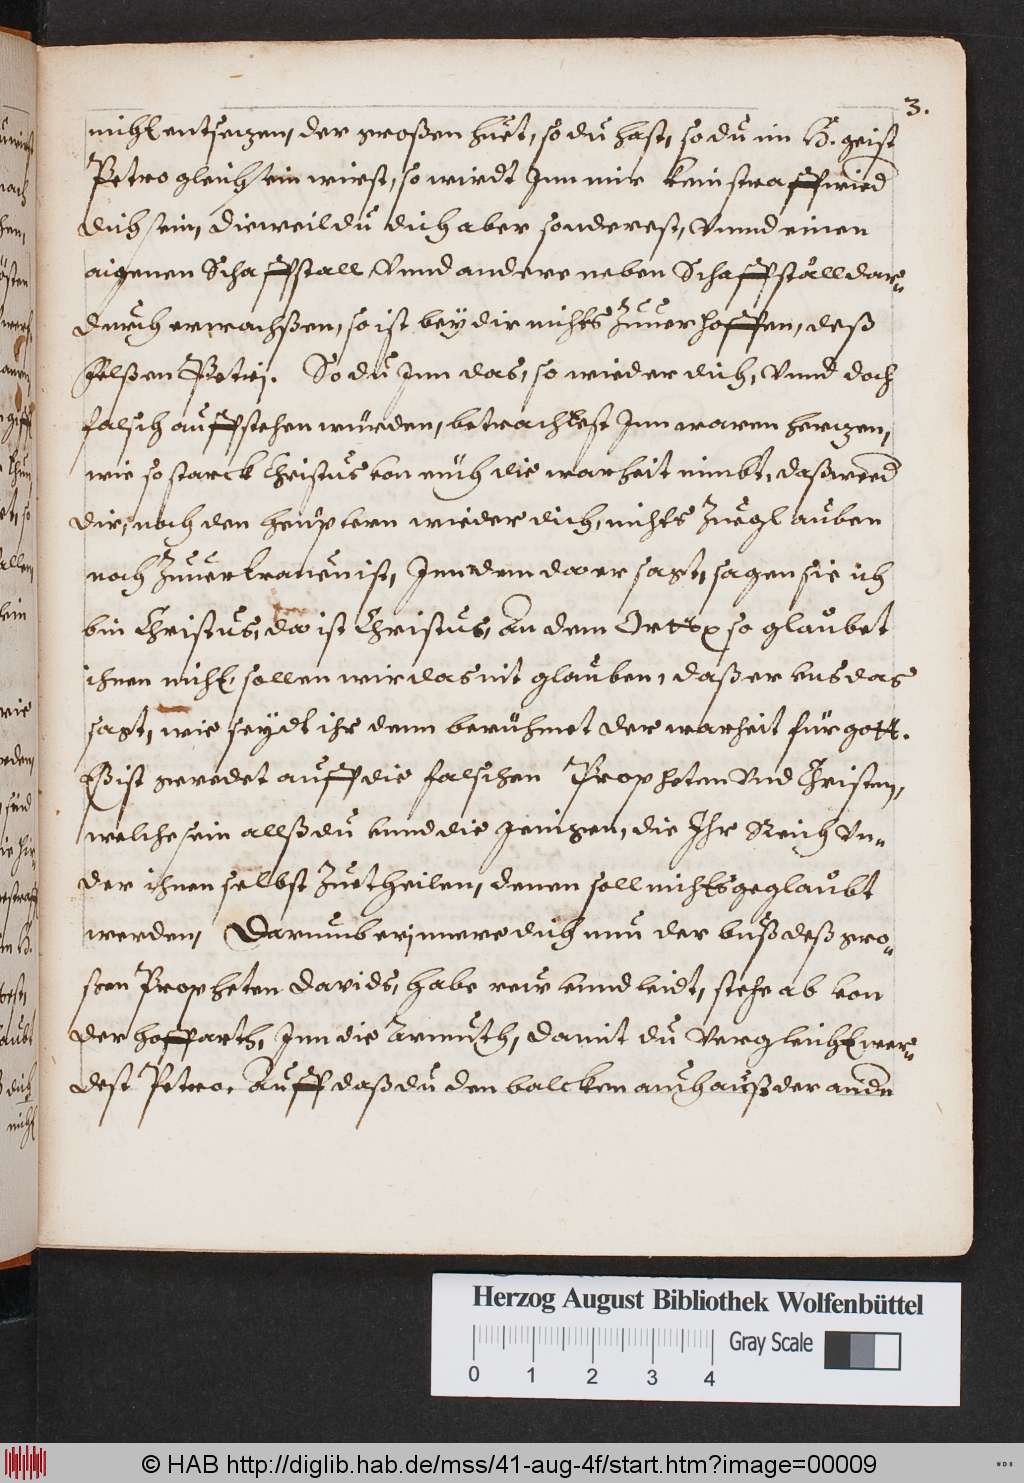 3.
nicht entsezen, der großen huet, so du hast, so du im H. geist
Petro gleich sein wirst, so wirdt Inn mir kein straff wied
dich sein, dieweil du dich aber sonderest, Vnnd einen
aigenen Schaffstall Vnnd andere neben Schaffställ dar-
durch erwachßen, so ist bey dir nichts Zuuerhoffen, deß
felßen Petri. So du Inn das, so wieder dich, Vnnd doch
falsch auffstehen würden, betrachtest Inn waren herzen,
wie so starck Christus von euch die warheit nimbt, daß weed
dir, noch den heuptern wieder dich, nichts Zue glauben
noch Zuuertrauen ist, Inn dem da er sagt, sagen sie ich
bin Christus, da ist Christus, An dem Ortt so glaubet
ihnen nicht, sollen wir das nit glauben, daß er vns das
sagt, wie seydt ihr denn berühmet der warheit für gott.
Eß ist geredet auff die falschen Propheten Vnd Christen,
welche sein allß du vnnd die jenigen, die Ihr Reich Vn-
der ihnen selbst Zuetheilen, denen soll nichts geglaubt
werden, Darumb erjnnere dich nun der buß deß gro-
ßen Propheten Davids, habe reiw vnnd leidt, stehe ab von
der hoffarth, Inn die Armuth, damit du Vergleicht wer-
dest Petro. Auff daß du den balcken auch auß der anden
Herzog August Bibliothek Wolfenbüttel
Gray Scale
0 1 2 3 4
© HAB http://diglib.hab.de/mss/41-aug-4f/start.htm?image=00009